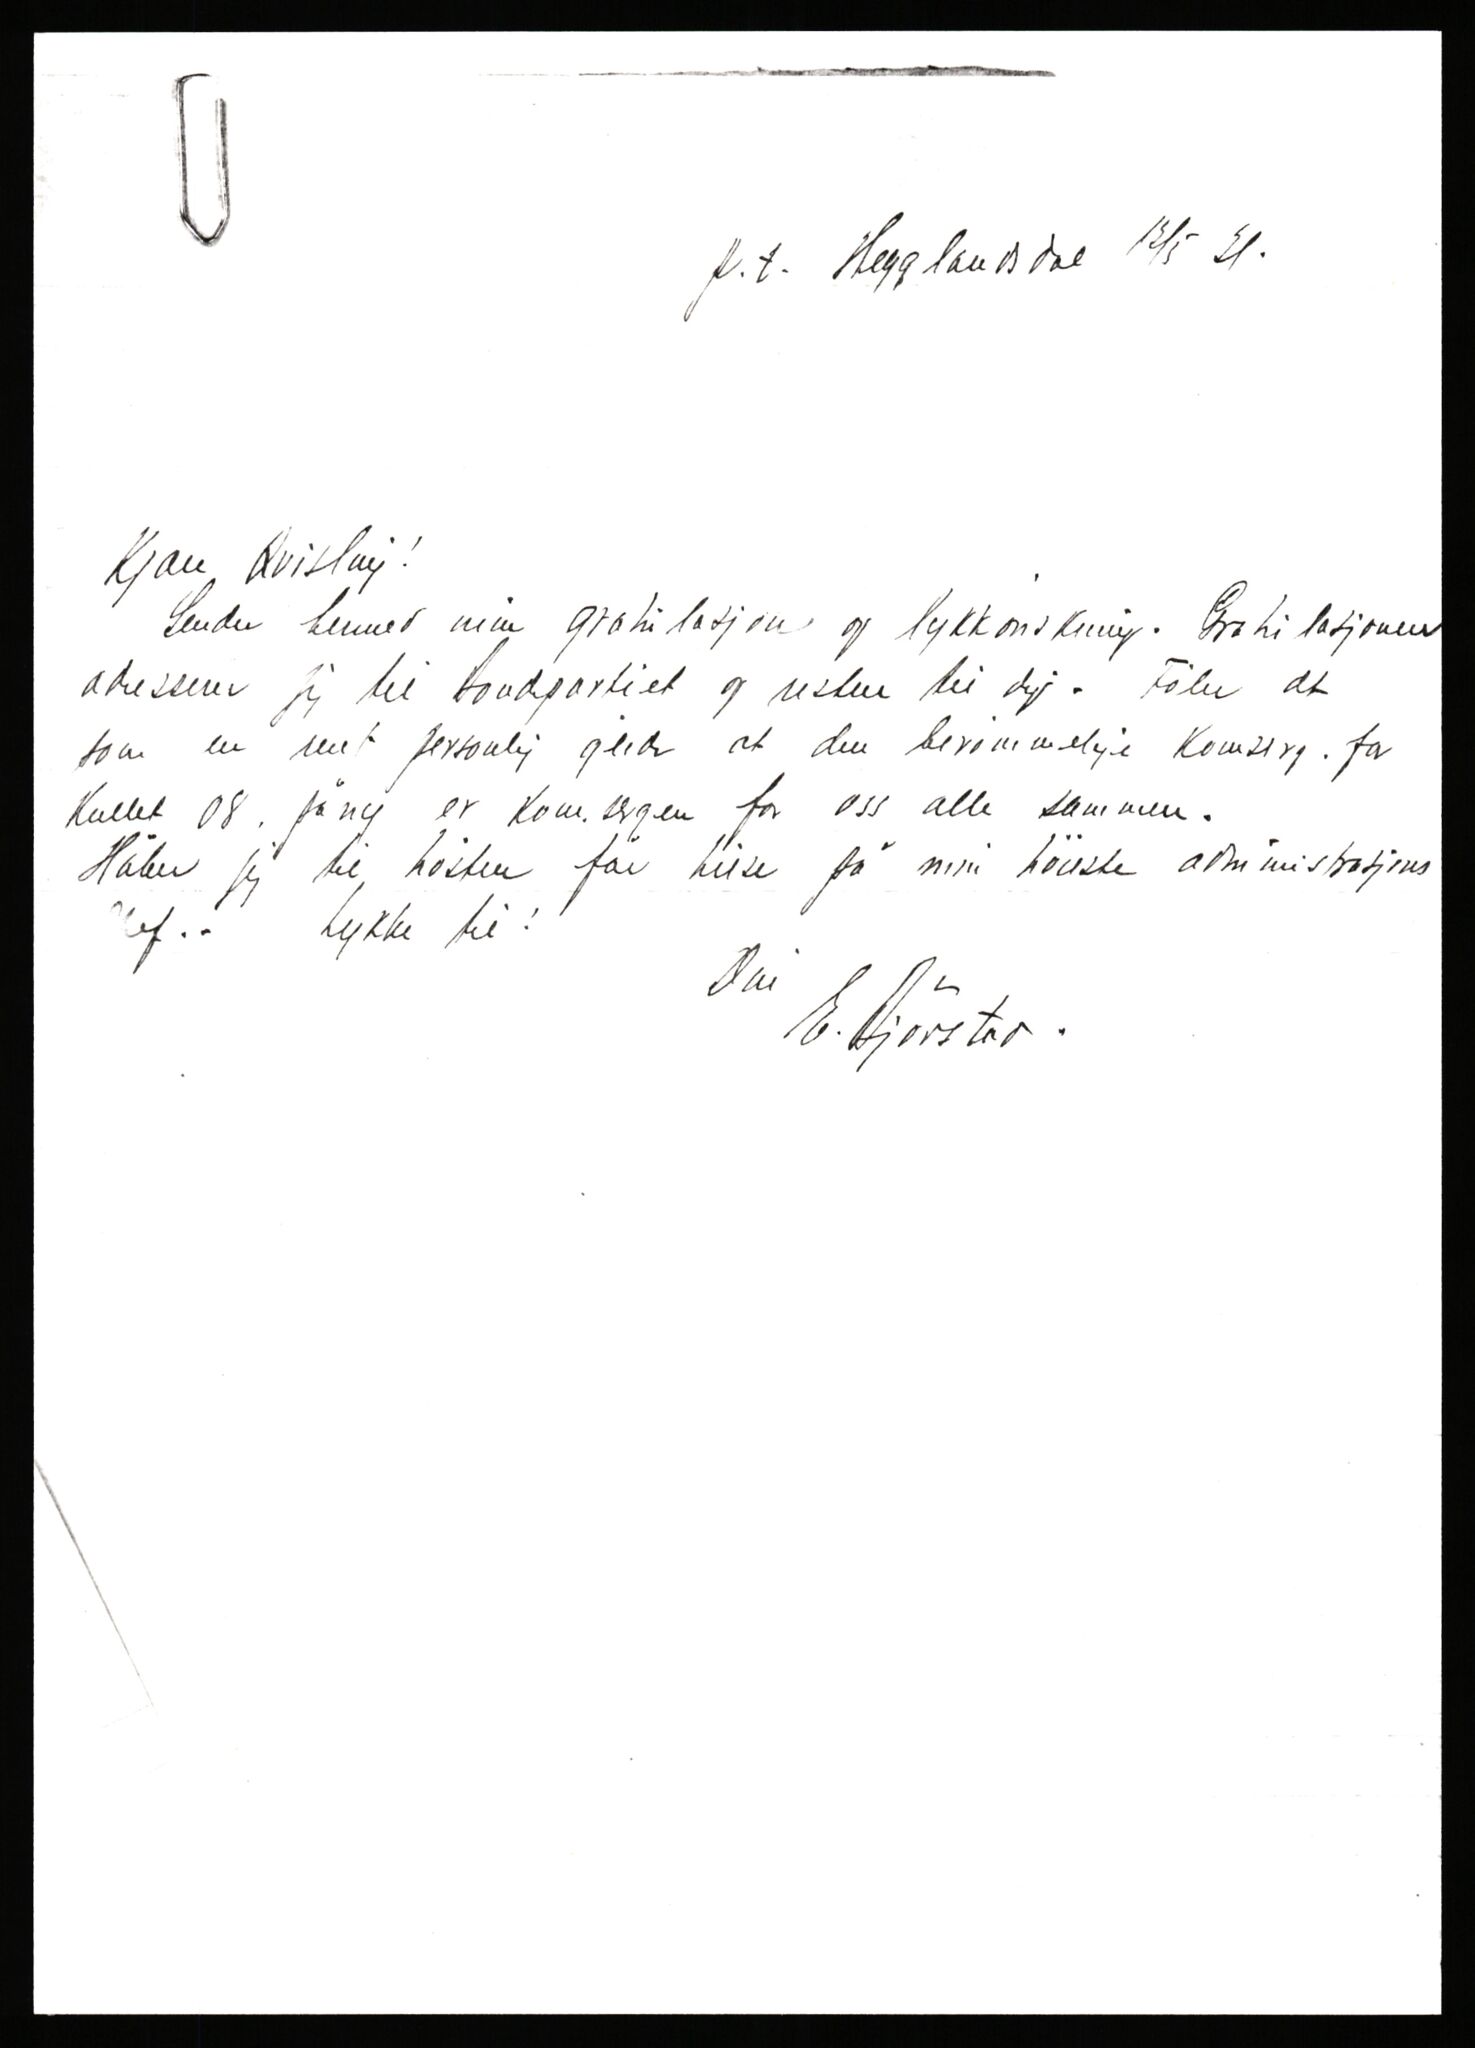 p.t. Hegglandsdal 12/5 31.
Kjære Quisling!
Sender herved min gratulasjon og lykkönskning. Gratulasjonen
adresserer jeg til bondepartiet og resten til dig. Föler det
som en rent personlig glede at den berömmelige komserg. for
kullet 08, påny er kom.sergen for oss alle sammen.
Håber jeg til hösten får hilse på min höieste administrasjons
sjef.. Lykke til!
Din
E. Hjörstad.